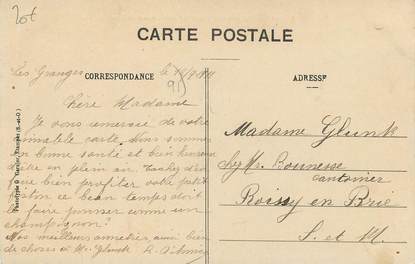 CARTE POSTALE
CORRESPONDANCE
ADRESSE
Les Granges le
Chère Madame
Je vous remercie de votre
aimable carte. Nous sommes
en bonne santé et bien heureux
d'être en plein air. Tachez de
faire bien profiter votre petit
ce beau temps doit
le faire pousser comme un
champignon!
Nos meilleurs amitiés, ainsi bien
de choses à Mr. Glunk
Madame Glunk
chez Mr. Bounesse
cantonier
Boissy en Brie
S. et M.